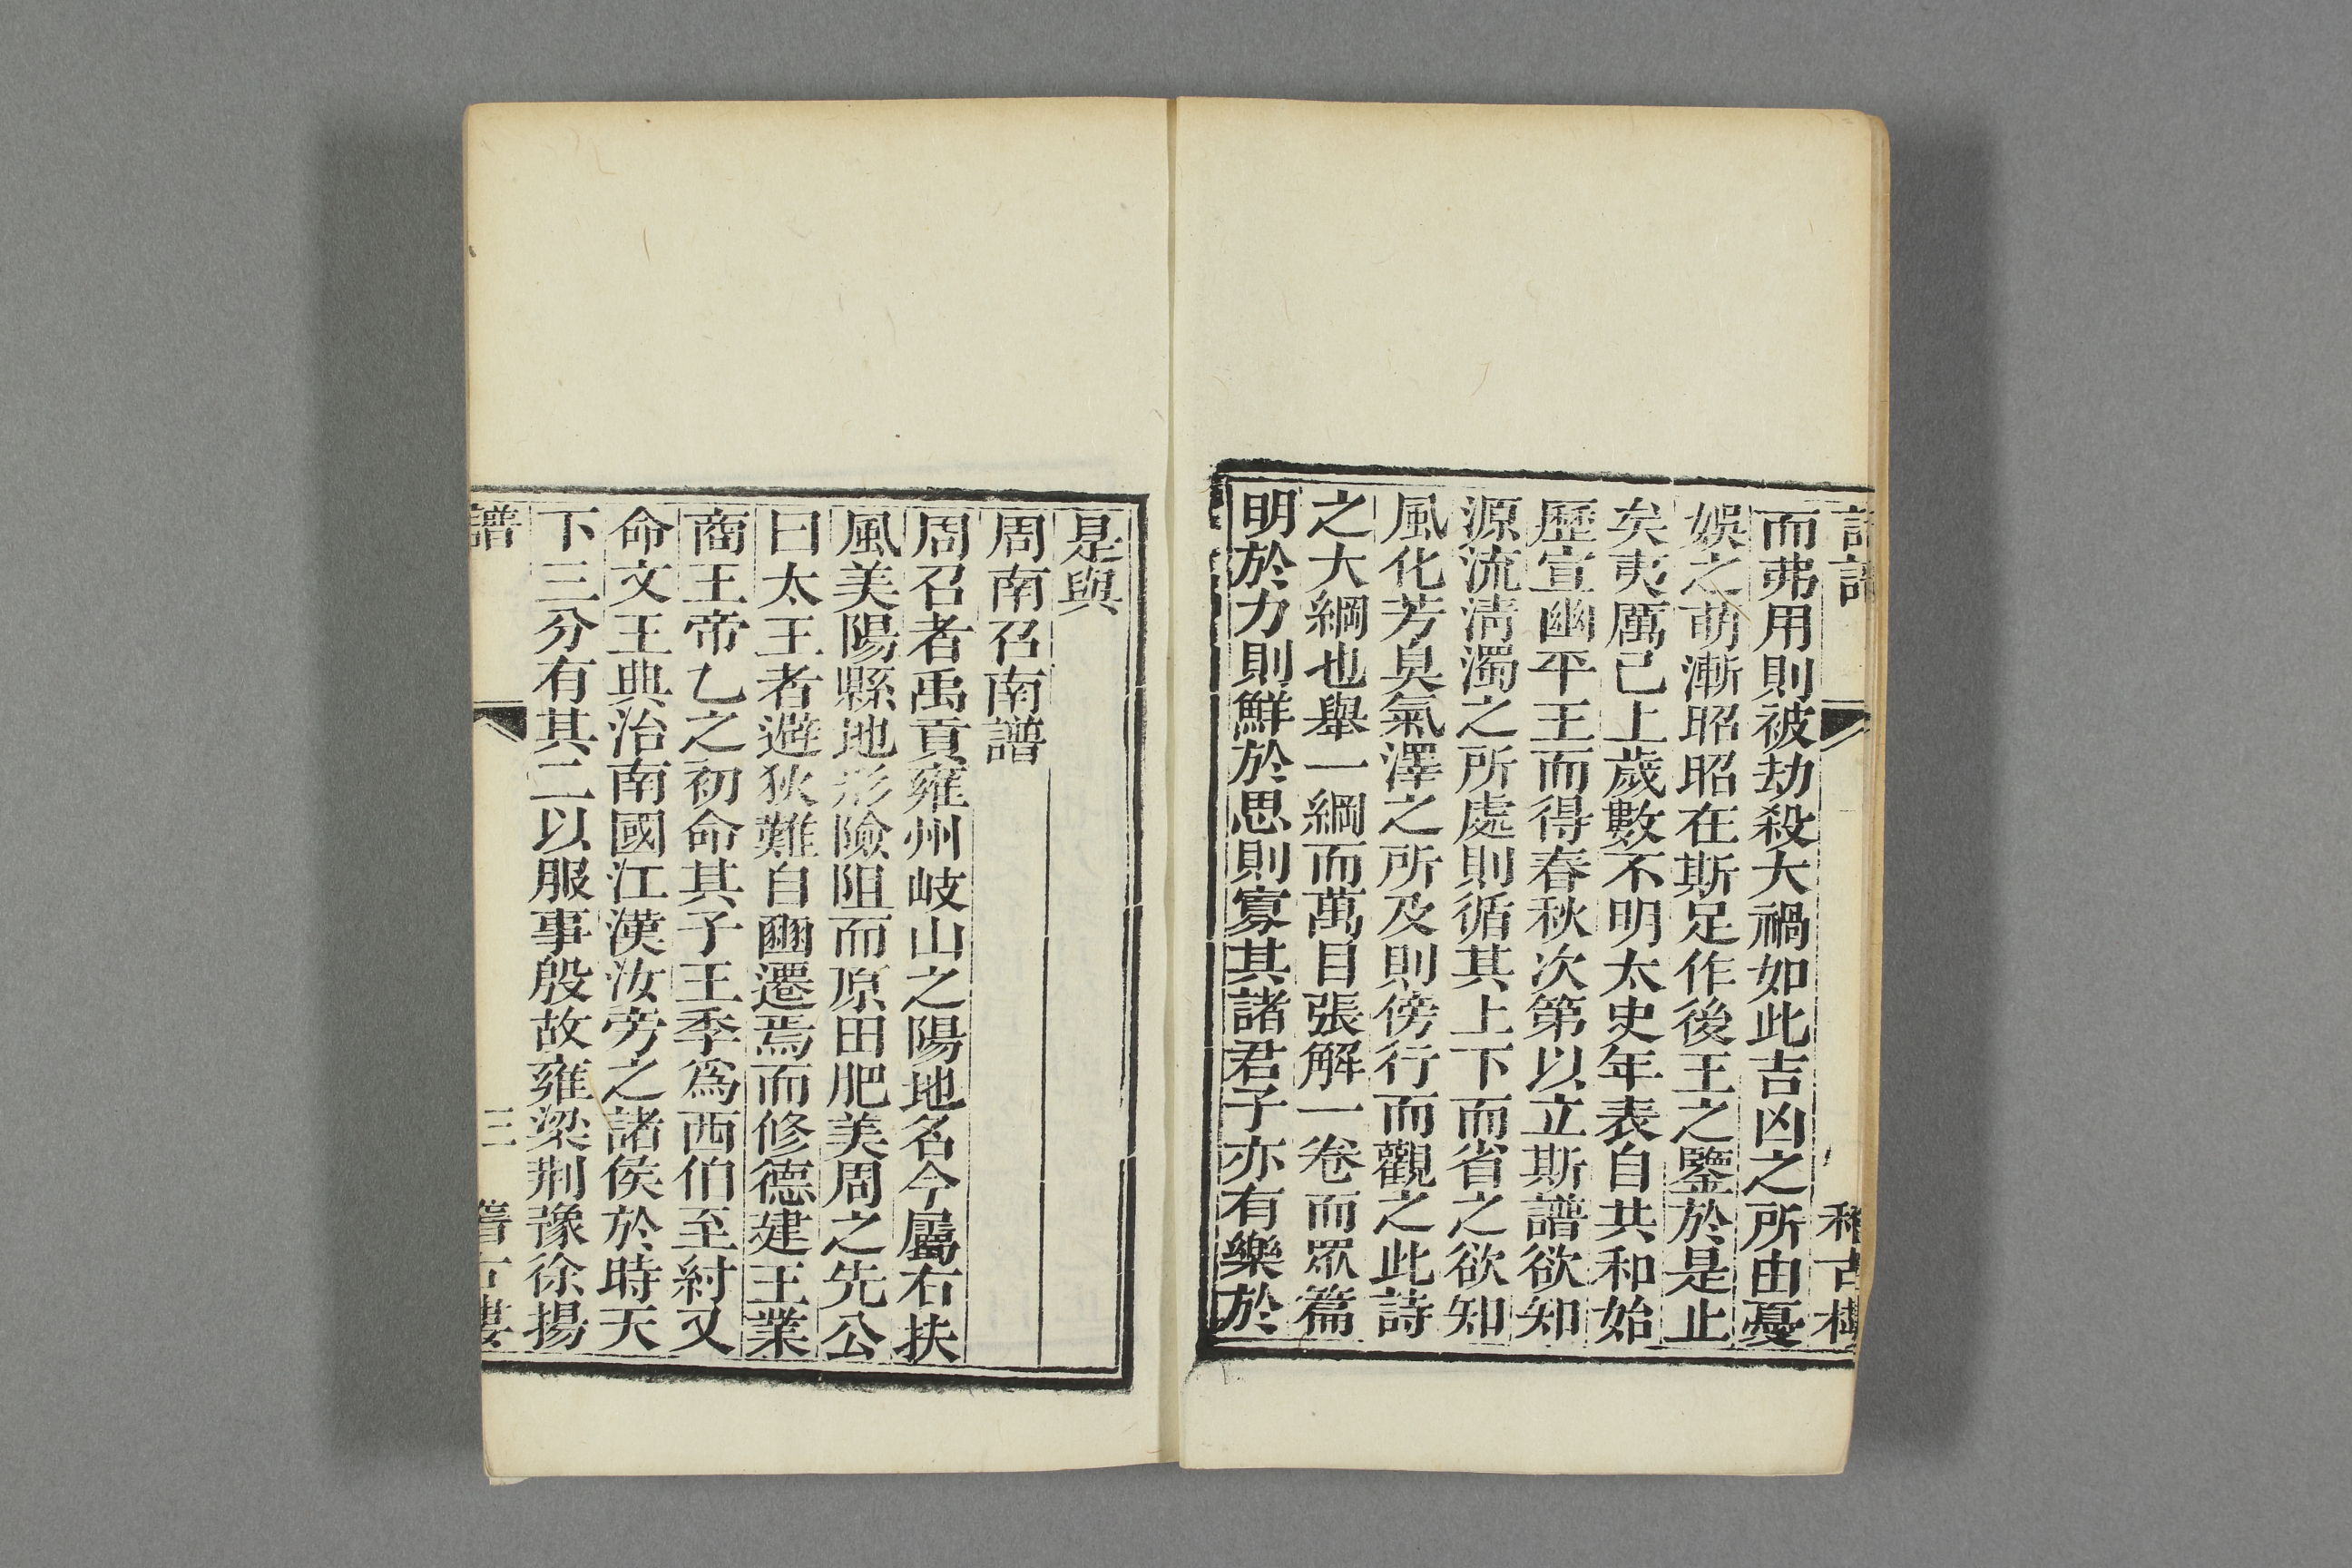 而弗用則被劫殺大禍如此吉凶之所由憂
娛之萌漸昭昭在斯足作後王之鑒於是止
矣夷厲已上歲數不明太史年表自共和始
歷宣幽平王而得春秋次第以立斯譜欲知
源流淸濁之所處則循其上下而省之欲知
風化芳臭氣澤之所及則傍行而觀之此詩
之大綱也舉一綱而萬目張解一卷而眾篇
明於力則鮮於思則寡其諸君子亦有樂於
是與
周南召南譜
周召者禹貢雍州岐山之陽地名今屬右扶
風美陽縣地形險阻而原田肥美周之先公
曰太王者避狄難自豳遷焉而修德建王業
商王帝乙之初命其子王季為西伯至紂又
命文王典治南國江漢汝旁之諸侯於時天
下三分有其二以服事殷故雍梁荆豫徐揚
譜
三